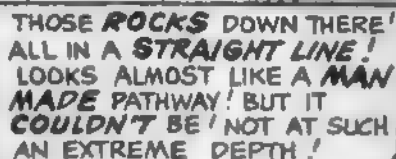 THOSE ROCKS DOWN THERE!
ALL IN A STRAIGHT LINE!
LOOKS ALMOST LIKE A MAN
MADE PATHWAY! BUT IT
COULDN'T BE! NOT AT SUCH
AN EXTREME DEPTH!